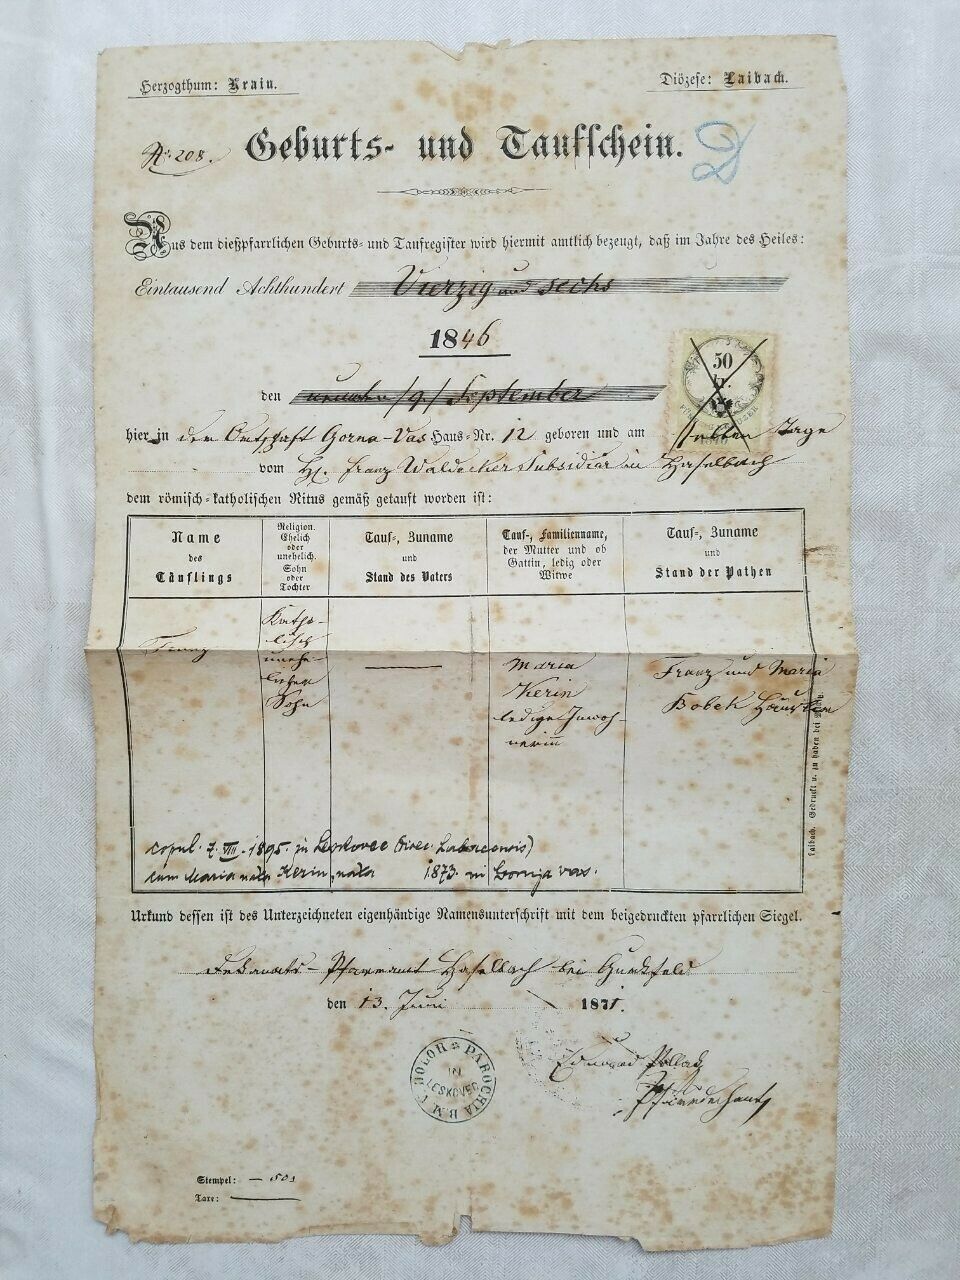 Herzogthum: Krain.
Diözese: Laibach.
№ 208.
Geburts- und Taufschein.
Aus dem dießpfarrlichen Geburts- und Taufregister wird hiermit amtlich bezeugt, daß im Jahre des Heiles:
Eintausend Achthundert Vierzig und sechs
1846
50
kr.
den neunten /9/ September
hier in der Ortschaft Gorna-Vas Haus-Nr. 12 geboren und am selben Tage
vom H. Franz Waldecker Subsidiar in Haselbach
dem römisch-katholischen Ritus gemäß getauft worden ist:
Name
des
Täuflings
Religion.
Ehelich
oder
unehelich.
Sohn
oder
Tochter
Tauf-, Zuname
und
Stand des Vaters
Tauf-, Familienname,
der Mutter und ob
Gattin, ledig oder
Witwe
Tauf-, Zuname
und
Stand der Pathen
Franz
Katho-
lisch
unehe-
licher
Sohn
Maria
Kerin
ledige Inwoh-
nerin
Franz und Maria
Bobek Häusler
copul. 7. VIII. 1895. in Leskovec
cum Maria nata Kerin, nata 1873. in Gornja vas.
Laibach. Gedruckt u. zu haben bei
Urkund dessen ist des Unterzeichneten eigenhändige Namensunterschrift mit dem beigedruckten pfarrlichen Siegel.
Dekanats-Pfarramt Haselbach bei Gurkfeld
den 13. Juni 1871.
PAROCHIA B.M.V. DOLOR
IN
LESKOVEC
Eduard Pollak
Pfarrdechant
Stempel: — 50
Taxe: